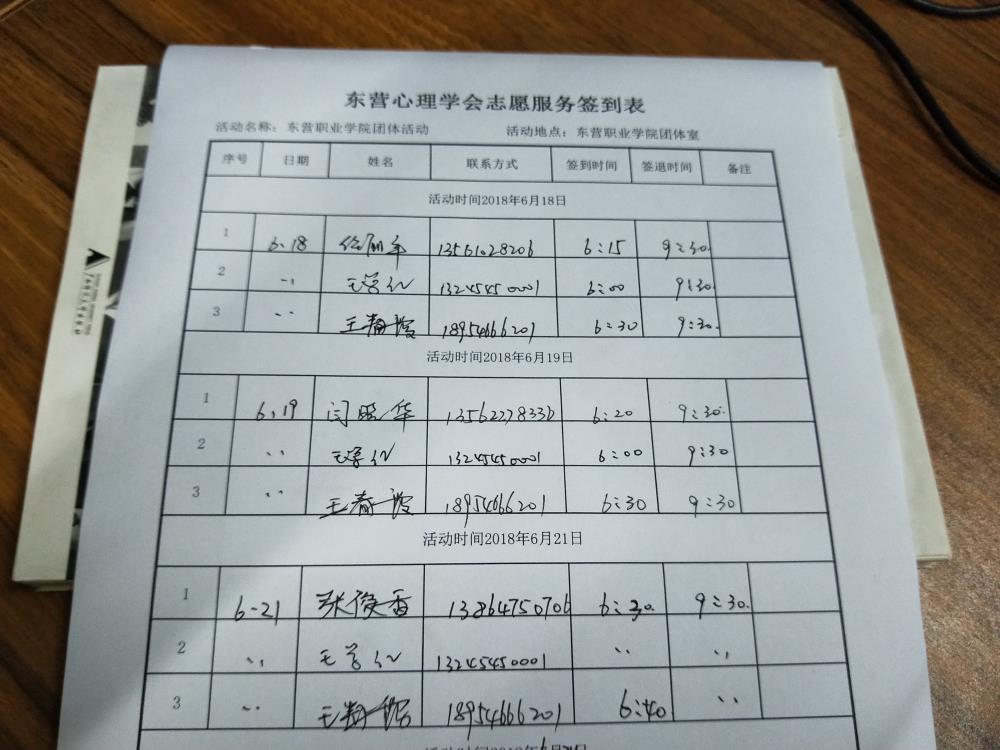 东营心理学会志愿服务签到表
活动名称：东营职业学院团体活动 活动地点：东营职业学院团体室
序号 日期 姓名 联系方式 签到时间 签退时间 备注
活动时间2018年6月18日
1 6.18 13561028206 6:15 9:30.
2 〃 13245450001 6:00 9:30
3 〃 18954666201 6:30 9:30.
活动时间2018年6月19日
1 6.19 13562278332 6:20 9:30.
2 〃 13245450001 6:00 9:30
3 〃 18954666201 6:30 9:30
活动时间2018年6月21日
1 6-21 张俊香 13864750706 6:30. 9:30.
2 〃 13245450001 〃 〃
3 〃 18954666201 6:40 〃